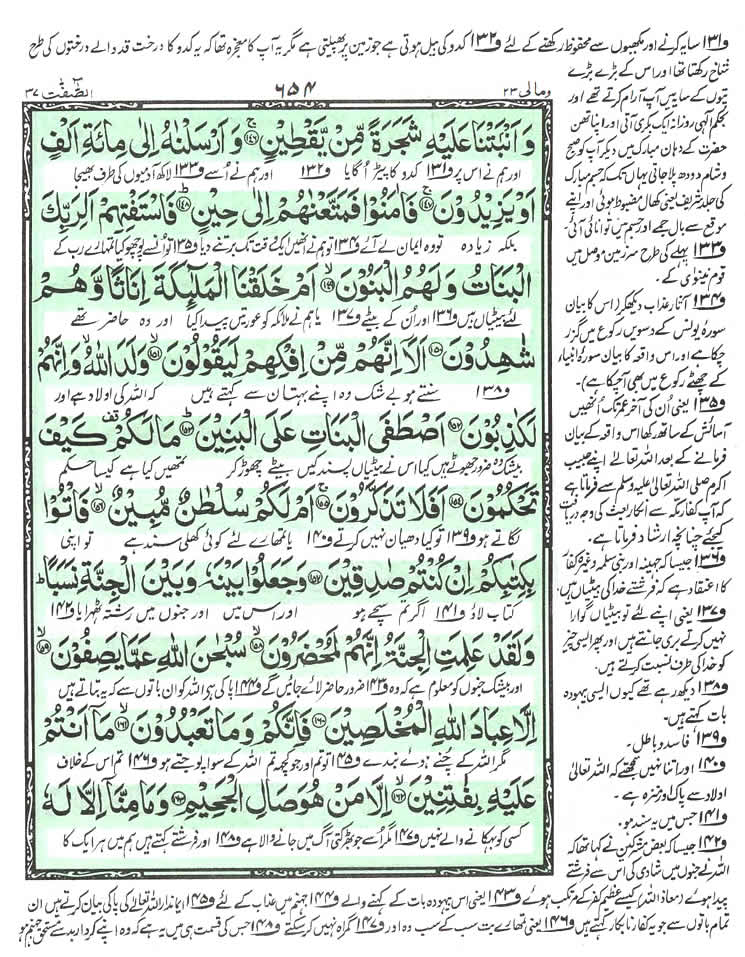 و۱۳۱ سایہ کرنے اور مکھیوں سے محفوظ رکھنے کے لئے و۱۳۲ کدو کی بیل ہوتی ہے جو زمین پر پھیلتی ہے مگر یہ آپ کا معجزہ تھا کہ یہ کدو کا درخت قد والے درختوں کی طرح
ومالی ۲۳
۶۵۴
الصّٰفّٰت ۳۷
وَ اَنْۢبَتْنَا عَلَیْهِ شَجَرَةً مِّنْ یَّقْطِیْنٍۚ۝۱۴۶ وَ اَرْسَلْنٰهُ اِلٰى مِائَةِ اَلْفٍ
اور ہم نے اس پر و۱۳۱ کدو کا پیڑ اُگایا و۱۳۲ اور ہم نے اُسے و۱۳۳ لاکھ آدمیوں کی طرف بھیجا
اَوْ یَزِیْدُوْنَۚ۝۱۴۷ فَاٰمَنُوْا فَمَتَّعْنٰهُمْ اِلٰى حِیْنٍؕ۝۱۴۸ فَاسْتَفْتِهِمْ اَلِرَبِّكَ
بلکہ زیادہ تو وہ ایمان لے آئے و۱۳۴ تو ہم نے انھیں ایک وقت تک برتنے دیا و۱۳۵ تو اُن سے پوچھو کیا تمہارے رب کے
الْبَنَاتُ وَ لَهُمُ الْبَنُوْنَۙ۝۱۴۹ اَمْ خَلَقْنَا الْمَلٰٓئِكَةَ اِنَاثًا وَّ هُمْ
لئے بیٹیاں ہیں و۱۳۶ اور اُن کے بیٹے و۱۳۷ یا ہم نے ملائکہ کو عورتیں پیدا کیا اور وہ حاضر تھے
شٰهِدُوْنَ۝۱۵۰ اَلَاۤ اِنَّهُمْ مِّنْ اِفْكِهِمْ لَیَقُوْلُوْنَۙ۝۱۵۱ وَلَدَ اللّٰهُۙ وَ اِنَّهُمْ
و۱۳۸ سنتے ہو بے شک وہ اپنے بہتان سے کہتے ہیں کہ اللہ کی اولاد ہے اور
لَكٰذِبُوْنَ۝۱۵۲ اَصْطَفَى الْبَنَاتِ عَلَى الْبَنِیْنَؕ۝۱۵۳ مَا لَكُمْ كَیْفَ
بیشک وہ ضرور جھوٹے ہیں کیا اس نے بیٹیاں پسند کیں بیٹے چھوڑ کر تمھیں کیا ہے کیسا حکم
تَحْكُمُوْنَ۝۱۵۴ اَفَلَا تَذَكَّرُوْنَۚ۝۱۵۵ اَمْ لَكُمْ سُلْطٰنٌ مُّبِیْنٌۙ۝۱۵۶ فَاْتُوْا
لگاتے ہو و۱۳۹ تو کیا دھیان نہیں کرتے و۱۴۰ یا تمہارے لئے کوئی کھلی سند ہے تو اپنی
بِكِتٰبِكُمْ اِنْ كُنْتُمْ صٰدِقِیْنَ۝۱۵۷ وَ جَعَلُوْا بَیْنَهٗ وَ بَیْنَ الْجِنَّةِ نَسَبًاؕ
کتاب لاؤ و۱۴۱ اگر تم سچے ہو اور اس میں اور جنوں میں رشتہ ٹھہرایا و۱۴۲
وَ لَقَدْ عَلِمَتِ الْجِنَّةُ اِنَّهُمْ لَمُحْضَرُوْنَۙ۝۱۵۸ سُبْحٰنَ اللّٰهِ عَمَّا یَصِفُوْنَۙ۝۱۵۹
اور بیشک جنوں کو معلوم ہے کہ وہ و۱۴۳ ضرور حاضر لائے جائیں گے و۱۴۴ پاکی ہے اللہ کو ان باتوں سے کہ یہ بتاتے ہیں
اِلَّا عِبَادَ اللّٰهِ الْمُخْلَصِیْنَ۝۱۶۰ فَاِنَّكُمْ وَ مَا تَعْبُدُوْنَۙ۝۱۶۱ مَاۤ اَنْتُمْ
مگر اللہ کے چُنے ہوئے بندے و۱۴۵ تو تم اور جو کچھ تم اللہ کے سوا پوجتے ہو و۱۴۶ تم اس کے خلاف
عَلَیْهِ بِفٰتِنِیْنَۙ۝۱۶۲ اِلَّا مَنْ هُوَ صَالِ الْجَحِیْمِ۝۱۶۳ وَ مَا مِنَّاۤ اِلَّا لَهٗ
کسی کو بہکانے والے نہیں و۱۴۷ مگر اُسے جو بھڑکتی آگ میں جانے والا ہے و۱۴۸ اور فرشتے کہتے ہیں ہم میں ہر ایک کا
شاخ رکھتا تھا اور اس کے بڑے بڑے
پتوں کے سایہ میں آپ آرام کرتے تھے اور
بحکم الٰہی روزانہ ایک بکری آتی اور اپنا تھن
حضرت کے دہان مبارک میں دیکر آپ کو صبح
و شام دودھ پلا جاتی یہاں تک کہ جسم مبارک
کی جلد شریف یعنی کھال مضبوط ہوئی اور اپنے
موقع سے بال جمے اور جسم میں توانائی آئی۔
و۱۳۳ پہلے کی طرح سرزمین موصل میں
قوم نینویٰ کے۔
و۱۳۴ آثار عذاب دیکھکر (اس کا بیان
سورۂ یونس کے دسویں رکوع میں گزر
چکا ہے اور اس واقعہ کا بیان سورۂ انبیاء
کے چھٹے رکوع میں بھی آچکا ہے)۔
و۱۳۵ یعنی اُن کی آخر عمر تک اُنھیں
آسائش کے ساتھ رکھا اس واقعہ کے بیان
فرمانے کے بعد اللہ تعالیٰ اپنے حبیب
اکرم صلی اللہ تعالیٰ علیہ وسلم سے فرماتا ہے
کہ آپ کفار مکہ سے انکار بعث کی وجہ دریافت
کیجئے چنانچہ ارشاد فرماتا ہے۔
و۱۳۶ جیسا کہ جہینہ اور بنی سلمہ وغیرہ کفار
کا اعتقاد ہے کہ فرشتے خدا کی بیٹیاں ہیں۔
و۱۳۷ یعنی اپنے لئے تو بیٹیاں گوارا
نہیں کرتے بری جانتے ہیں اور پھر ایسی چیز
کو خدا کی طرف نسبت کرتے ہیں۔
و۱۳۸ دیکھ رہے تھے کیوں ایسی بیہودہ
بات کہتے ہیں۔
و۱۳۹ فاسد و باطل۔
و۱۴۰ اور اتنا نہیں سمجھتے کہ اللہ تعالیٰ
اولاد سے پاک اور منزہ ہے۔
و۱۴۱ جس میں یہ سند ہو۔
و۱۴۲ جیسا کہ بعض مشرکین نے کہا تھا کہ
اللہ نے جنوں میں شادی کی اس سے فرشتے
پیدا ہوئے (معاذ اللہ) کیسے عظیم کفر کے مرتکب ہوئے و۱۴۳ یعنی اس بیہودہ بات کے کہنے والے و۱۴۴ جہنم میں عذاب کے لئے و۱۴۵ ایماندار اللہ تعالیٰ کی پاکی بیان کرتے ہیں ان
تمام باتوں سے جو یہ کفار نابکار کہتے ہیں و۱۴۶ یعنی تمہارے بت سب کے سب وہ اور و۱۴۷ گمراہ نہیں کر سکتے و۱۴۸ جس کی قسمت ہی میں یہ ہے کہ وہ اپنے کردار بد سے مستحق جہنم ہو